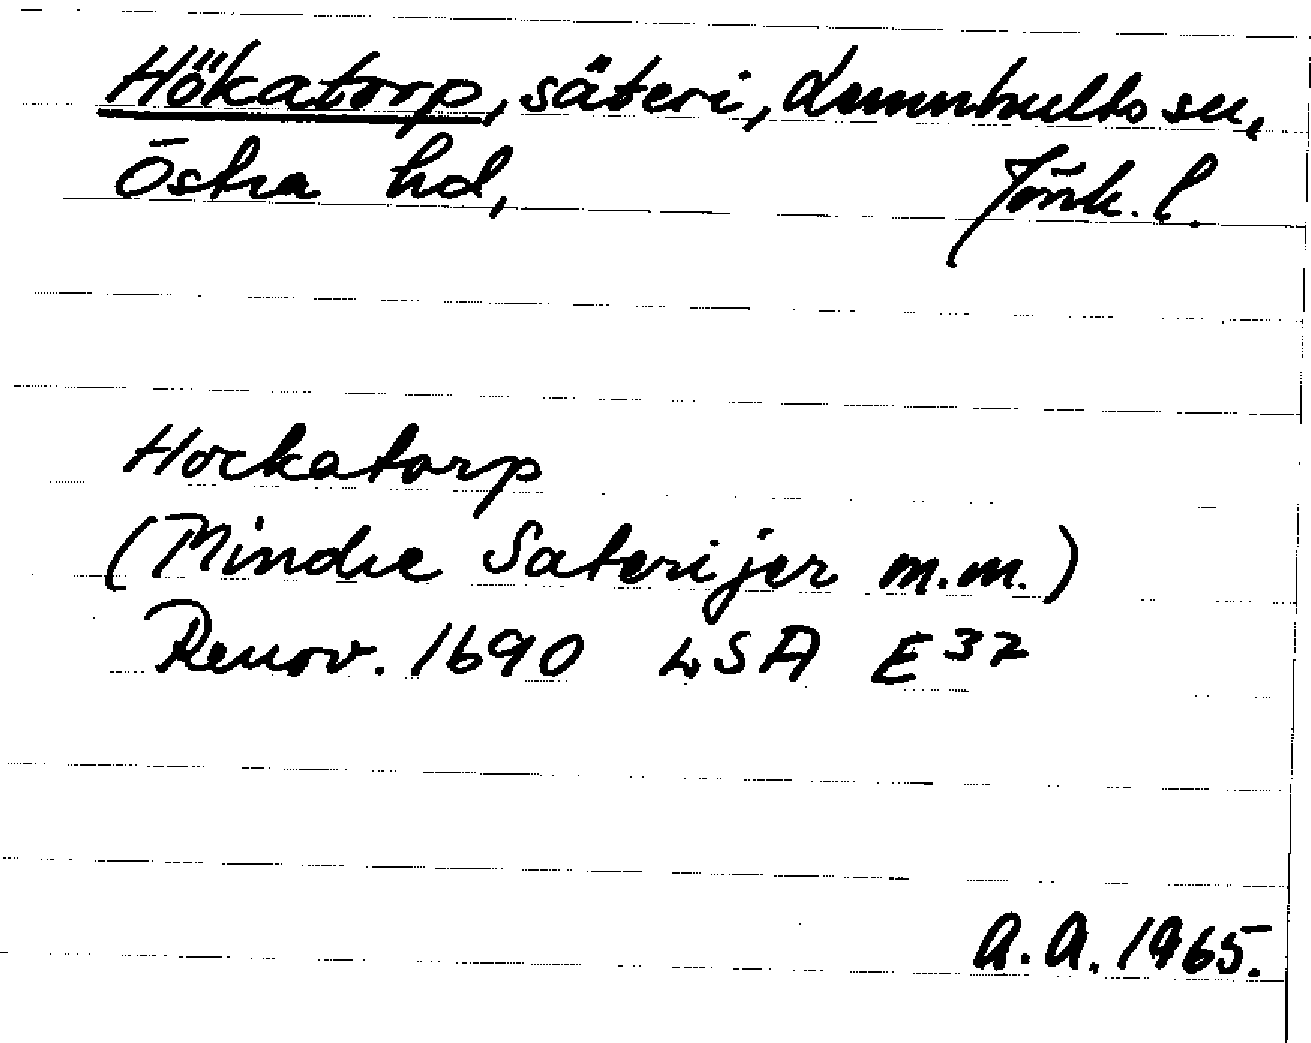 Hökatorp, säteri, Lemnhults sn,
Östra hd, Jönk. l.
Hockatorp
(Mindre Säterijer m.m.)
Renov. 1690 LSA E 37
A.A. 1965.